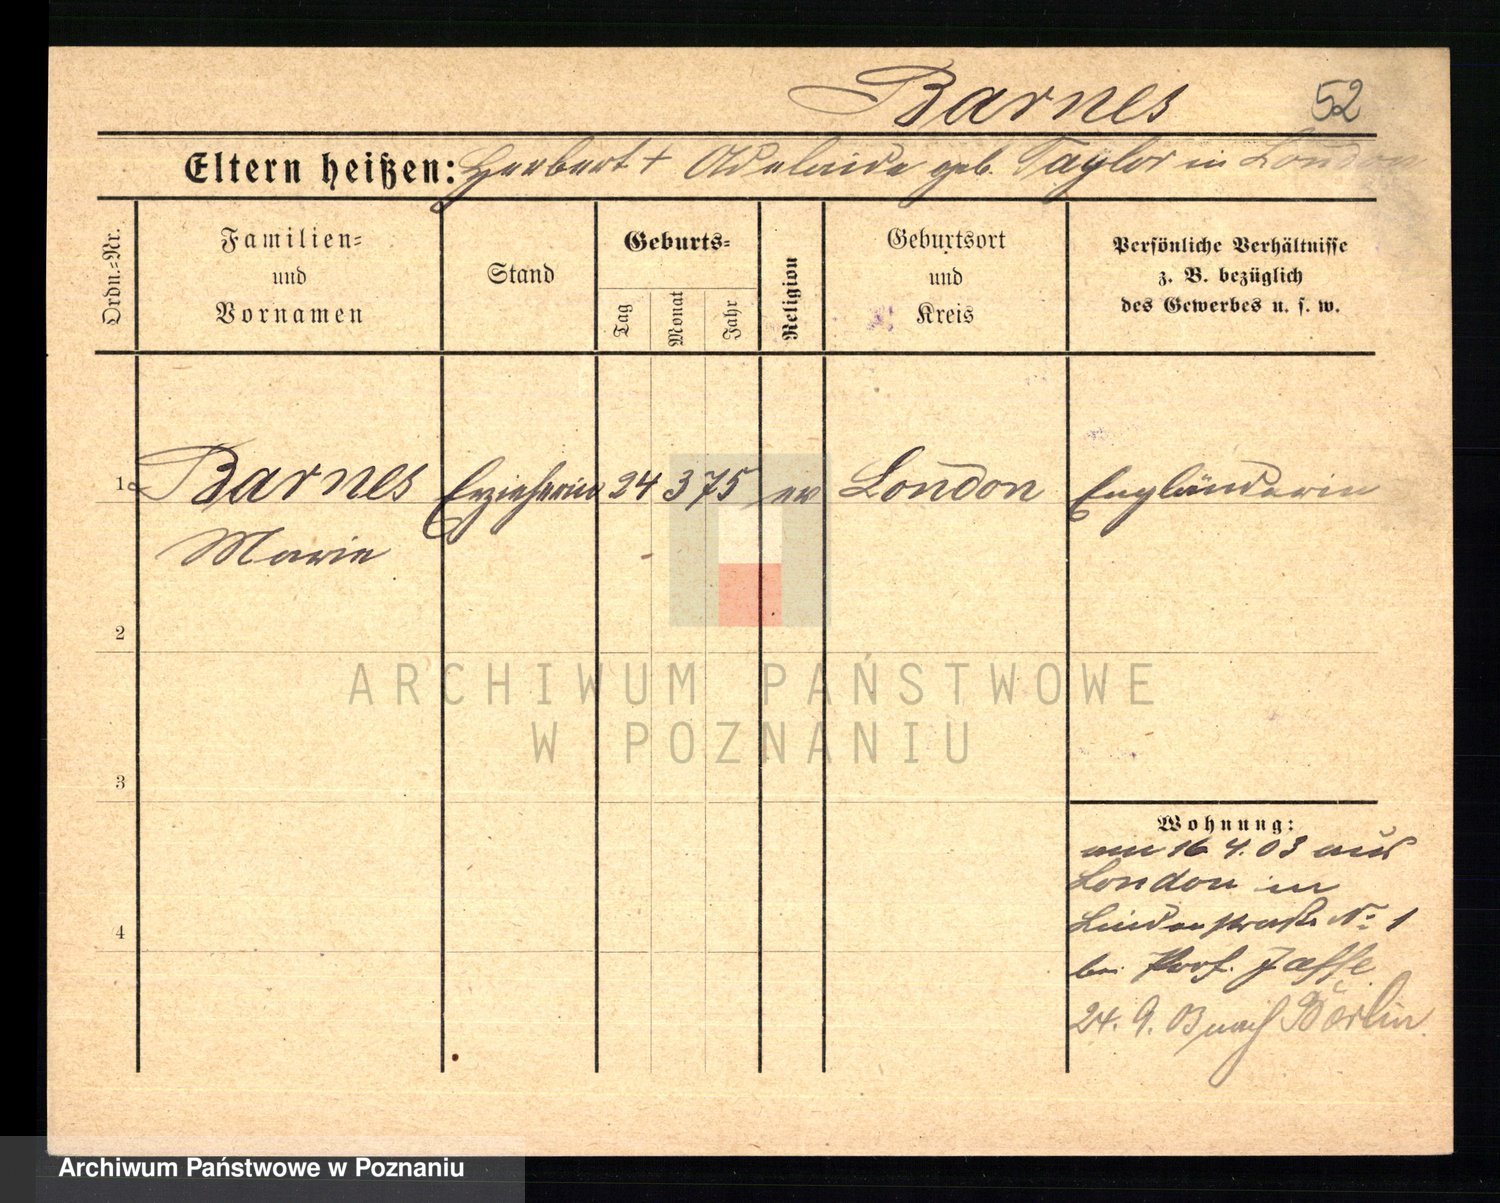 Barnes
52
Eltern heißen: Herbert + Adelaide geb. Taylor in London
Ordn.=Nr.
Familien=
und
Vornamen
Stand
Geburts=
Tag
Monat
Jahr
Religion
Geburtsort
und
Kreis
Persönliche Verhältnisse
z. B. bezüglich
des Gewerbes u. s. w.
1 Barnes Erzieherin 24 3 75 ev London Engländerin
Marie
2
ARCHIWUM PAŃSTWOWE
W POZNANIU
3
Wohnung:
am 16 4. 03 aus
London in
Lindenstraße No 1
bei Prof. Jaffe
4
24. 9. 03 nach Berlin
Archiwum Państwowe w Poznaniu